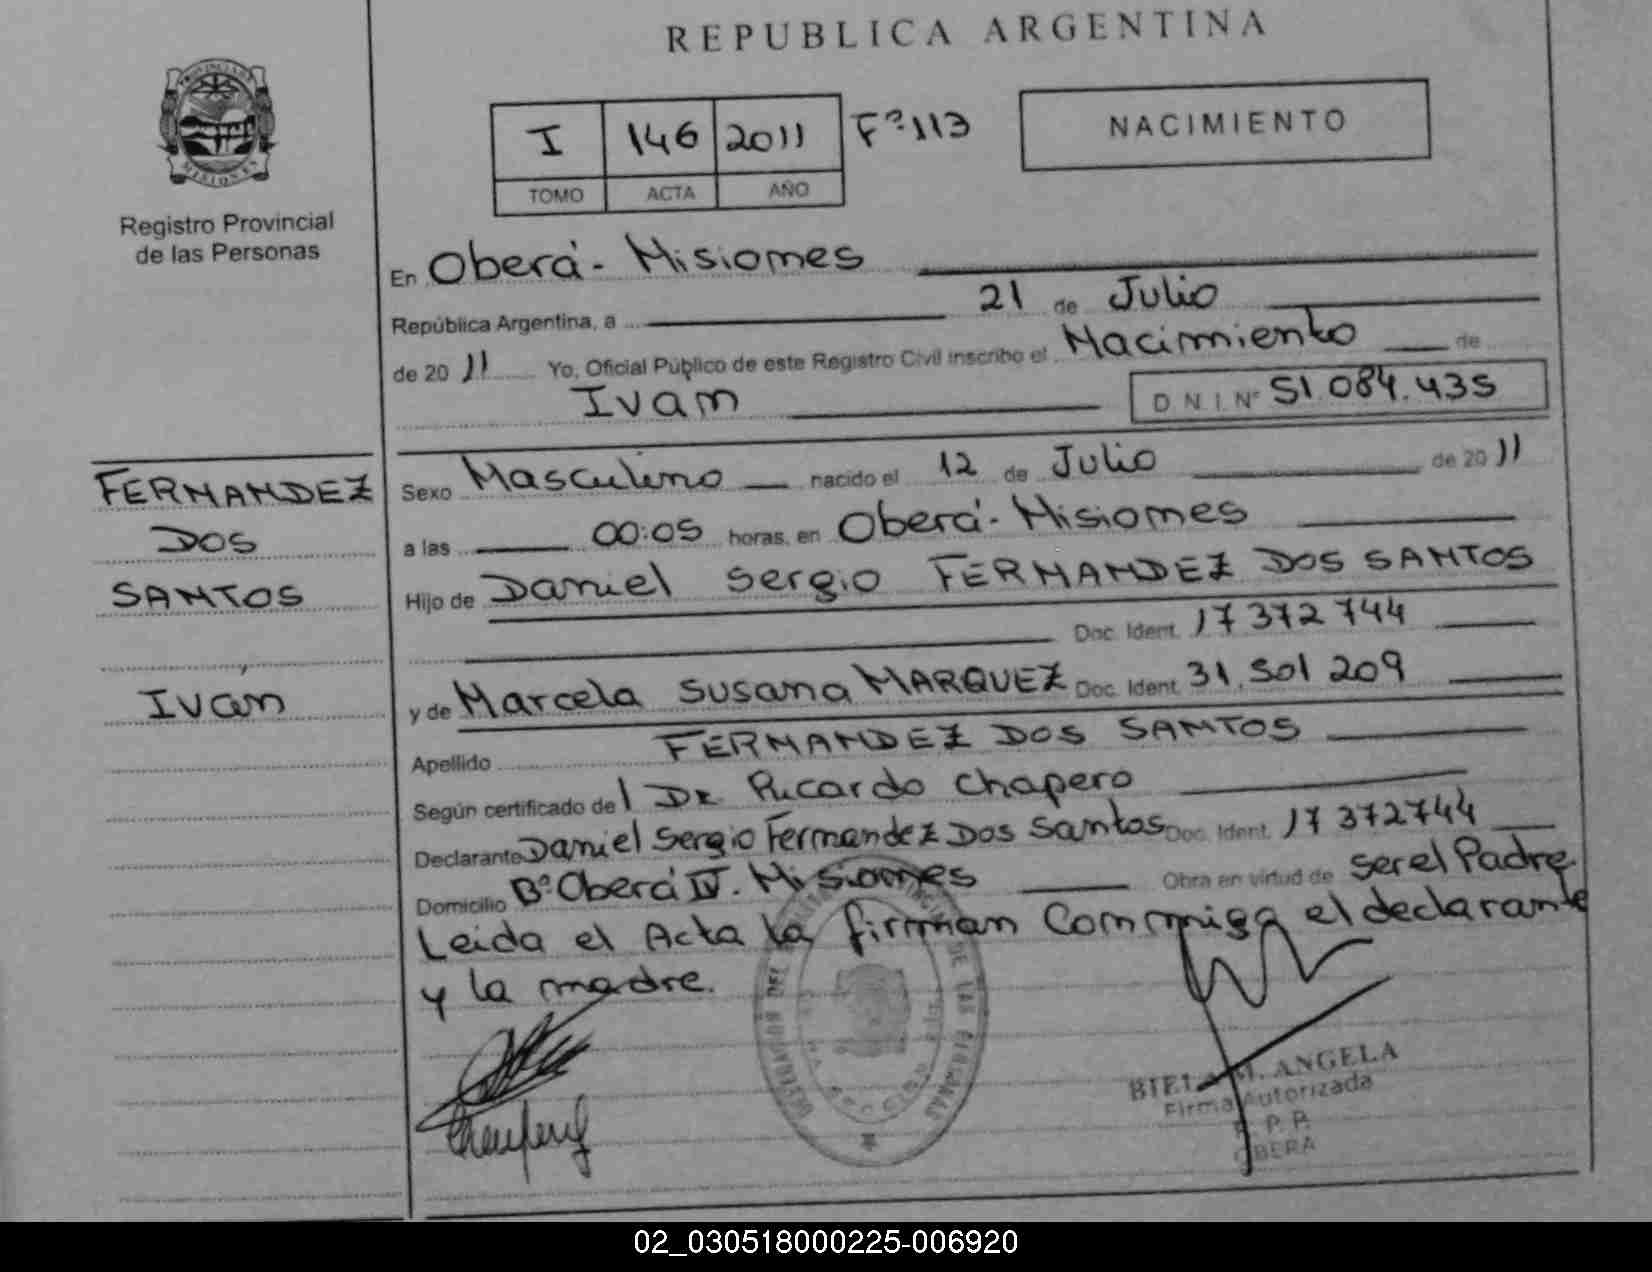 REPUBLICA ARGENTINA
PROVINCIA DE
MISIONES
Registro Provincial
de las Personas
I 146 2011 Fº 113
TOMO ACTA AÑO
NACIMIENTO
En Oberá - Misiones
República Argentina, a 21 de Julio
de 2011 Yo, Oficial Público de este Registro Civil inscribo el Nacimiento de
Ivan D.N.I. Nº 51.084.435
FERNANDEZ
DOS
SANTOS
Ivan
Sexo Masculino nacido el 12 de Julio de 2011
a las 00:05 horas, en Oberá - Misiones
Hijo de Daniel Sergio FERNANDEZ DOS SANTOS
Doc. Ident. 17 372 744
y de Marcela Susana MARQUEZ Doc. Ident. 31.501 209
Apellido FERNANDEZ DOS SANTOS
Según certificado del Dr. Ricardo Chapero
Declarante Daniel Sergio Fernandez Dos Santos Doc. Ident. 17 372744
Domicilio Bº Oberá IV. Misiones Obra en virtud de ser el Padre
Leida el Acta la firman Conmigo el declarante
y la madre.
DE LAS PERSONAS
M. ANGELA
Firma Autorizada
P. P.
OBERA
02_030518000225-006920